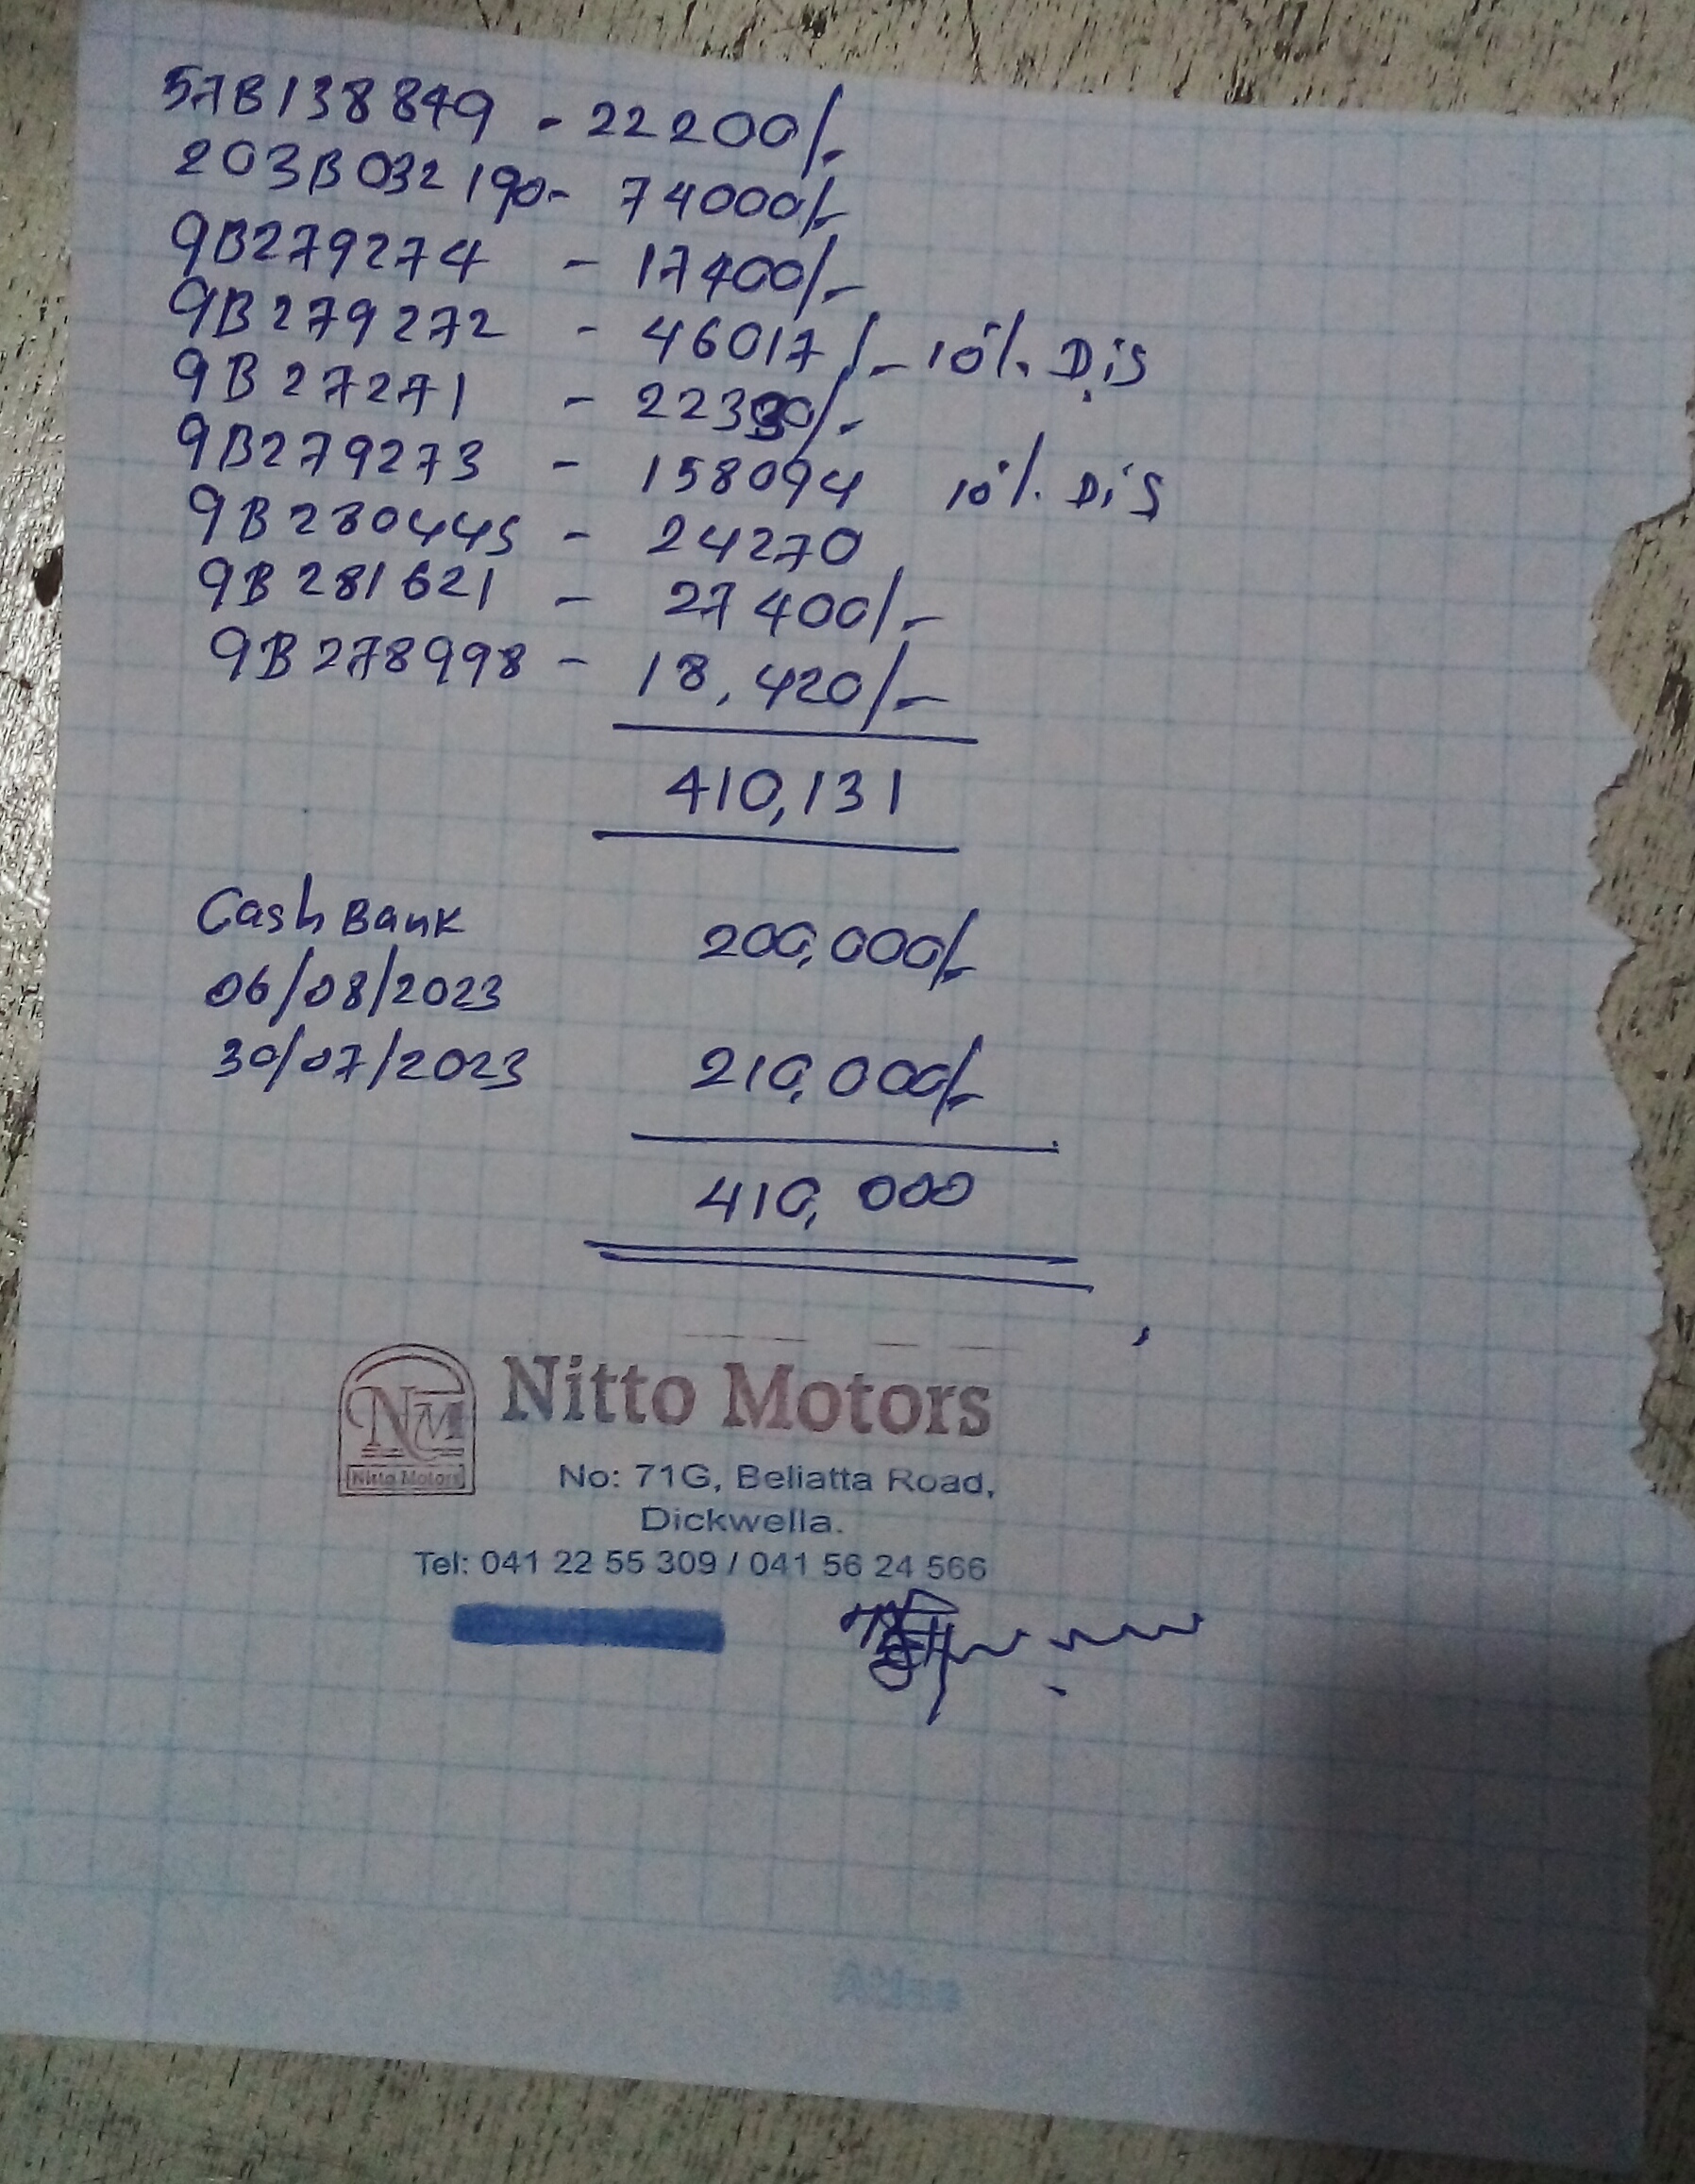 57B138849 - 22200/-
203B032190 - 74000/-
9B279274 - 17400/-
9B279272 - 46017/- 10%. Dis
9B27271 - 22330/-
9B279273 - 158094 10%. Dis
9B280445 - 24270
9B281621 - 27400/-
9B278998 - 18,420/-
410,131
Cash Bank 200,000/-
06/08/2023
30/07/2023 210,000/-
410,000
NM
Nitto Motors
Nitto Motors
No: 71G, Beliatta Road,
Dickwella.
Tel: 041 22 55 309 / 041 56 24 566